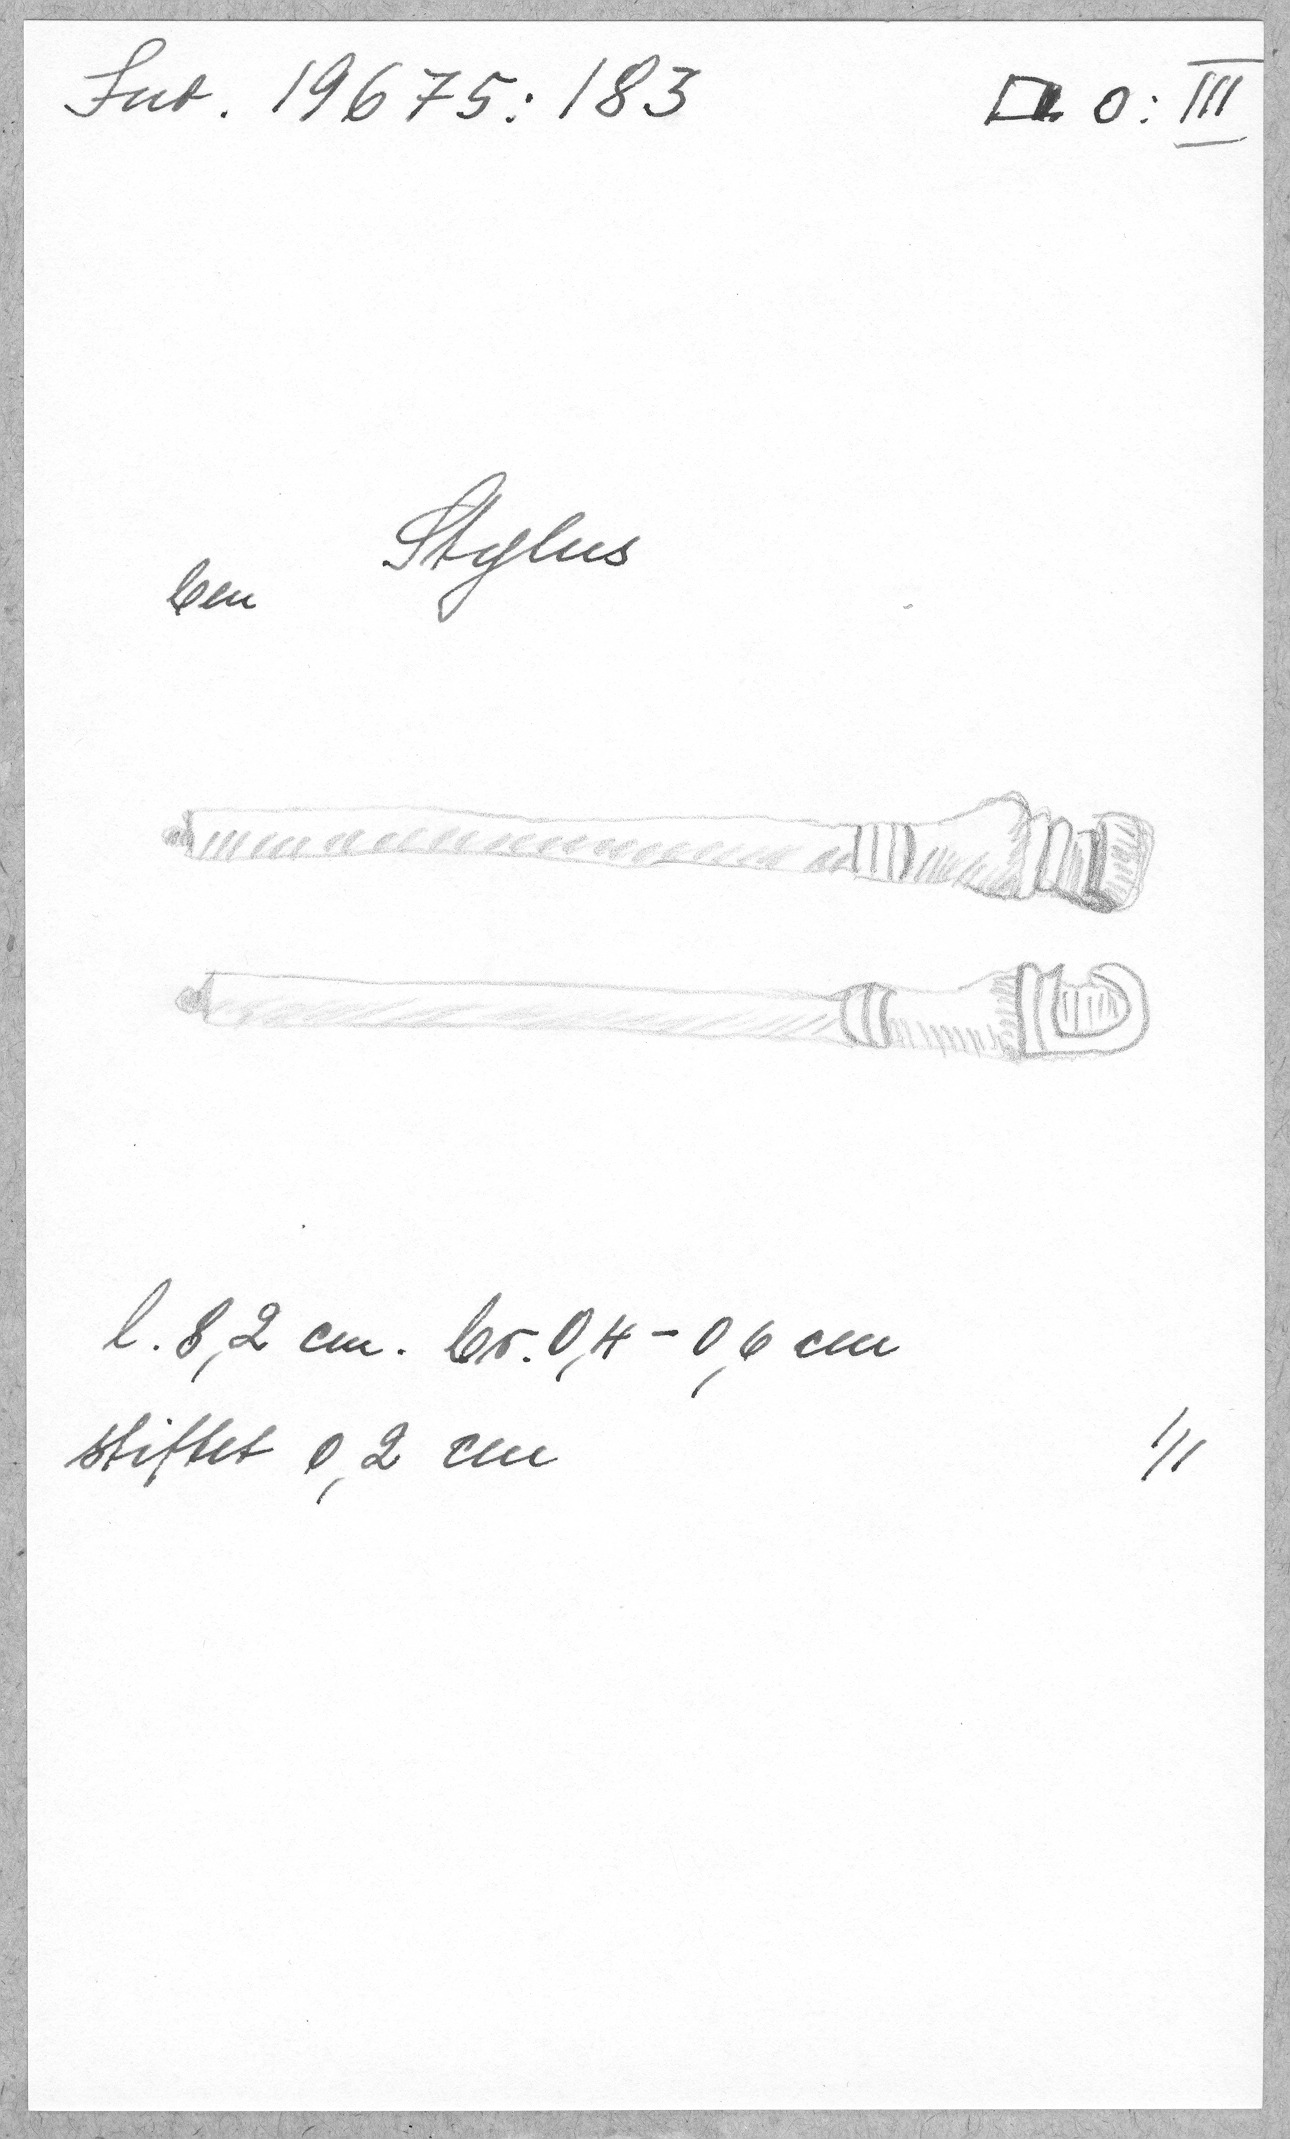 Inv. 19675:183 O: III
Stylus
ben
l. 8,2 cm. br. 0,4 - 0,6 cm
stiftet 0,2 cm
1/1